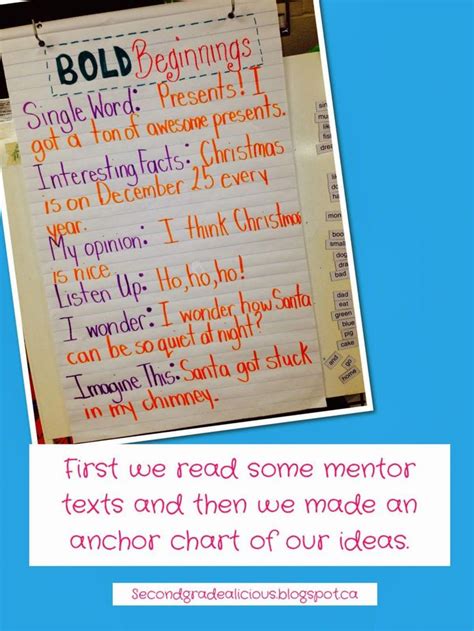 BOLD Beginnings
Single Word: Presents! I
got a ton of awesome presents.
Interesting Facts: Christmas
is on December 25 every
year.
My opinion: I think Christmas
is nice.
Listen Up: Ho, ho, ho!
I wonder: I wonder how Santa
can be so quiet at night?
Imagine This: Santa got stuck
in my chimney.
like
do
boo
small
dog
dear
bad
dad
eat
green
blue
pig
cake
and
go
home
First we read some mentor
texts and then we made an
anchor chart of our ideas.
Secondgradealicious.blogspot.ca